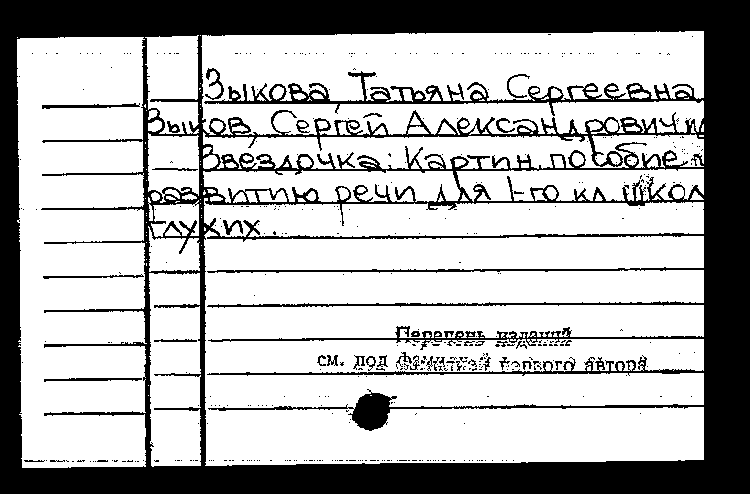 Зыкова, Татьяна Сергеевна
Зыков, Сергей Александрович и
Звездочка: Картин. пособие п
развитию речи для 1-го кл. школ
глухих.
Перечень изданий
см. под фамилией первого автора